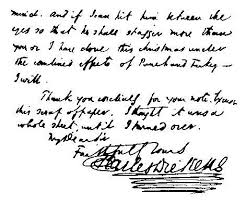 mind. and if I can hit him between the
eyes so that he shall stagger more than
you or I have done this Christmas under
the combined effects of Punch and Turkey –
I will.
Thank you cordially for your note. Excuse
this scrap of paper. I thought it was a
whole sheet, until I turned it over.
My Dear
Faithfully Yours
Charles Dickens